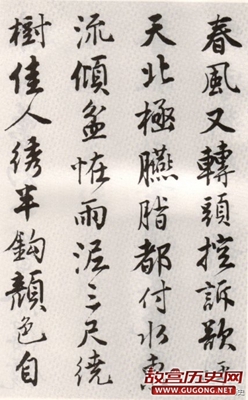 春風又轉頭控訴欲呼
天北極臙脂都付水東
流傾盆怪雨泥三尺繞
樹佳人綉半鈎顏色自
故宫历史网
WWW.GUGONG.NET